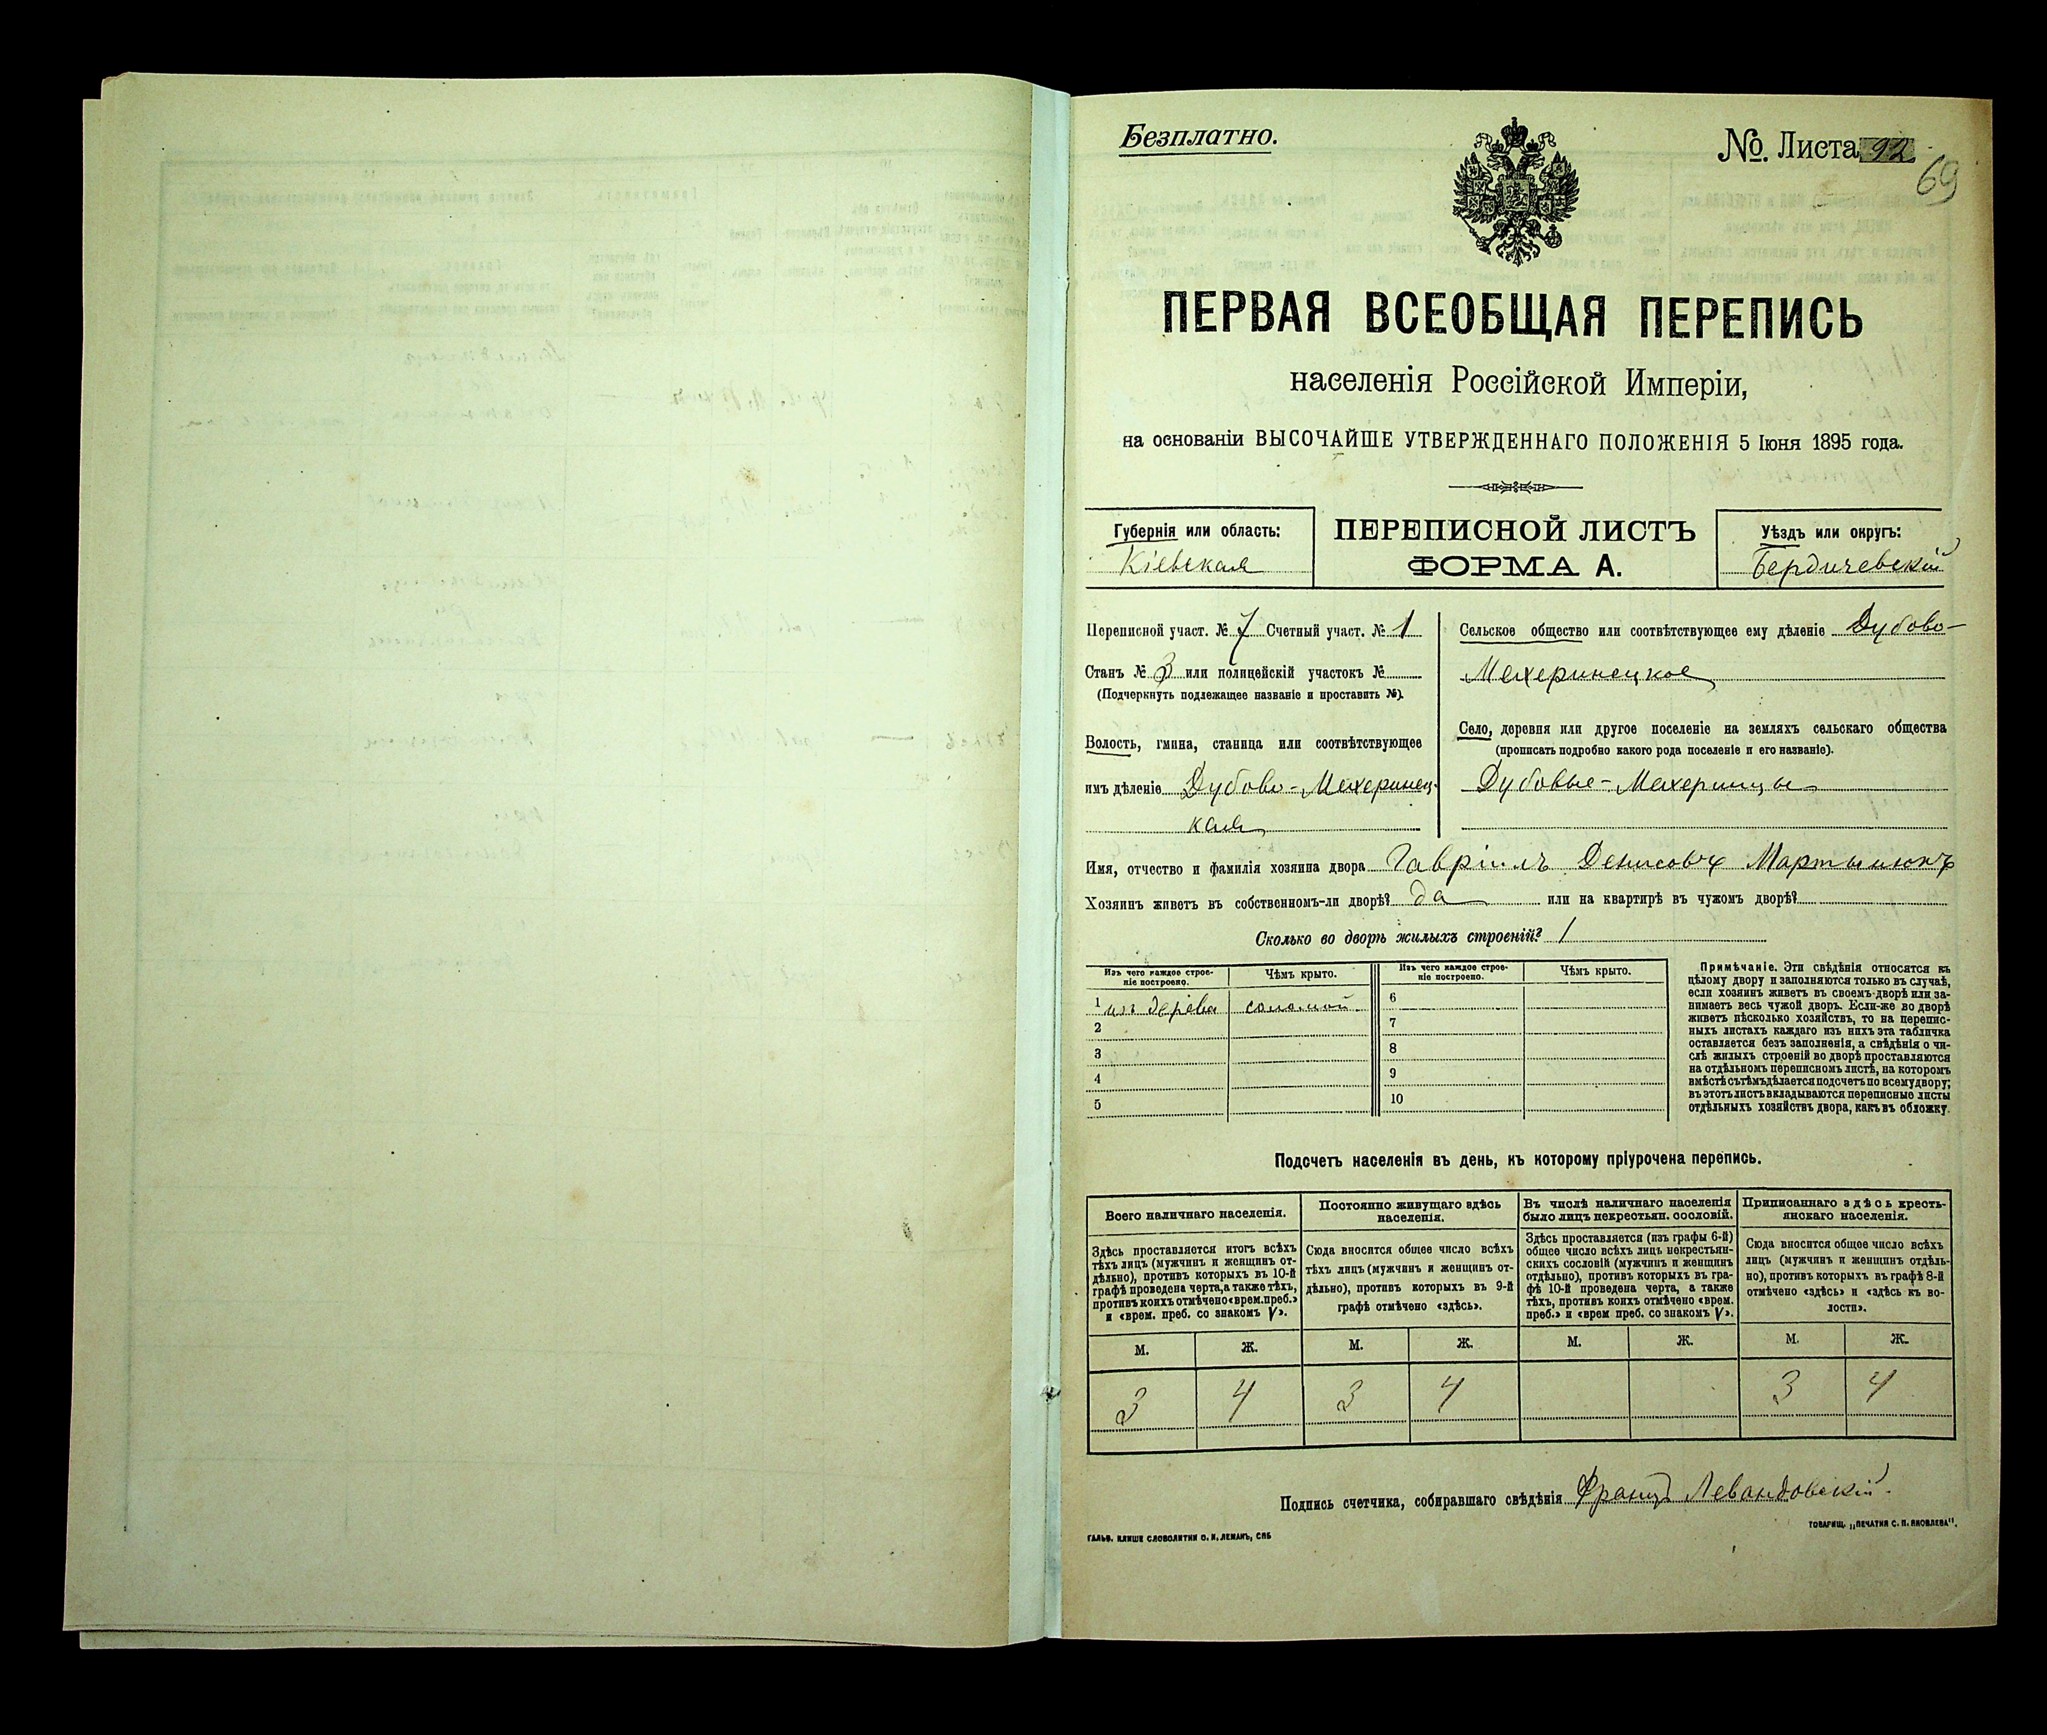 Безплатно.
№. Листа 92
69
ПЕРВАЯ ВСЕОБЩАЯ ПЕРЕПИСЬ
населенія Россійской Имперіи,
на основаніи ВЫСОЧАЙШЕ УТВЕРЖДЕННАГО ПОЛОЖЕНІЯ 5 Іюня 1895 года.
Губернія или область:
Кіевская
ПЕРЕПИСНОЙ ЛИСТЪ
ФОРМА А.
Уѣздъ или округъ:
Бердичевскій
Переписной участ. № 7 Счетный участ. № 1
Станъ № 3 или полицейскій участокъ №
(Подчеркнуть подлежащее названіе и проставить №).
Волость, гмина, станица или соотвѣтствующее
имъ дѣленіе Дубово-Махеринец-
кая
Сельское общество или соотвѣтствующее ему дѣленіе Дубово-
Махеринецкое
Село, деревня или другое поселеніе на земляхъ сельскаго общества
(прописать подробно какого рода поселеніе и его названіе).
Дубовые-Махеринцы
Имя, отчество и фамилія хозяина двора Гавріилъ Денисовъ Мартынюкъ
Хозяинъ живетъ въ собственномъ-ли дворѣ? да или на квартирѣ въ чужомъ дворѣ?
Сколько во дворѣ жилыхъ строеній? 1
Изъ чего каждое строе-
ніе построено.
Чѣмъ крыто.
Изъ чего каждое строе-
ніе построено.
Чѣмъ крыто.
1 изъ дерева соломой 6
2 7
3 8
4 9
5 10
Примѣчаніе. Эти свѣдѣнія относятся къ
цѣлому двору и заполняются только въ случаѣ,
если хозяинъ живетъ въ своемъ дворѣ или за-
нимаетъ весь чужой дворъ. Если-же во дворѣ
живетъ нѣсколько хозяйствъ, то на перепис-
ныхъ листахъ каждаго изъ нихъ эта табличка
оставляется безъ заполненія, а свѣдѣнія о чи-
слѣ жилыхъ строеній во дворѣ проставляются
на отдѣльномъ переписномъ листѣ, на которомъ
вмѣстѣ съ тѣмъ дѣлается подсчетъ по всему двору;
въ этотъ листъ вкладываются переписные листы
отдѣльныхъ хозяйствъ двора, какъ въ обложку.
Подсчетъ населенія въ день, къ которому пріурочена перепись.
Всего наличнаго населенія.
Здѣсь проставляется итогъ всѣхъ
тѣхъ лицъ (мужчинъ и женщинъ от-
дѣльно), противъ которыхъ въ 10-й
графѣ проведена черта, а также тѣхъ,
противъ коихъ отмѣчено «врем. преб.»
и «врем. преб. со знакомъ V».
Постоянно живущаго здѣсь
населенія.
Сюда вносится общее число всѣхъ
тѣхъ лицъ (мужчинъ и женщинъ от-
дѣльно), противъ которыхъ въ 9-й
графѣ отмѣчено «здѣсь».
Въ числѣ наличнаго населенія
было лицъ некрестьян. сословій.
Здѣсь проставляется (изъ графы 6-й)
общее число всѣхъ лицъ некрестьян-
скихъ сословій (мужчинъ и женщинъ
отдѣльно), противъ которыхъ въ гра-
фѣ 10-й проведена черта, а также
тѣхъ, противъ коихъ отмѣчено «врем.
преб.» и «врем преб. со знакомъ V».
Приписаннаго здѣсь кресть-
янскаго населенія.
Сюда вносится общее число всѣхъ
лицъ (мужчинъ и женщинъ отдѣль-
но), противъ которыхъ въ графѣ 8-й
отмѣчено «здѣсь» и «здѣсь къ во-
лости».
М. Ж. М. Ж. М. Ж. М. Ж.
3 4 3 4 3 4
Подпись счетчика, собиравшаго свѣдѣнія Францъ Левандовскій.
ГАЛЬВ. КЛИШЕ СЛОВОЛИТНИ О. И. ЛЕМАНЪ, СПБ
ТОВАРИЩ. „ПЕЧАТНЯ С. П. ЯКОВЛЕВА".